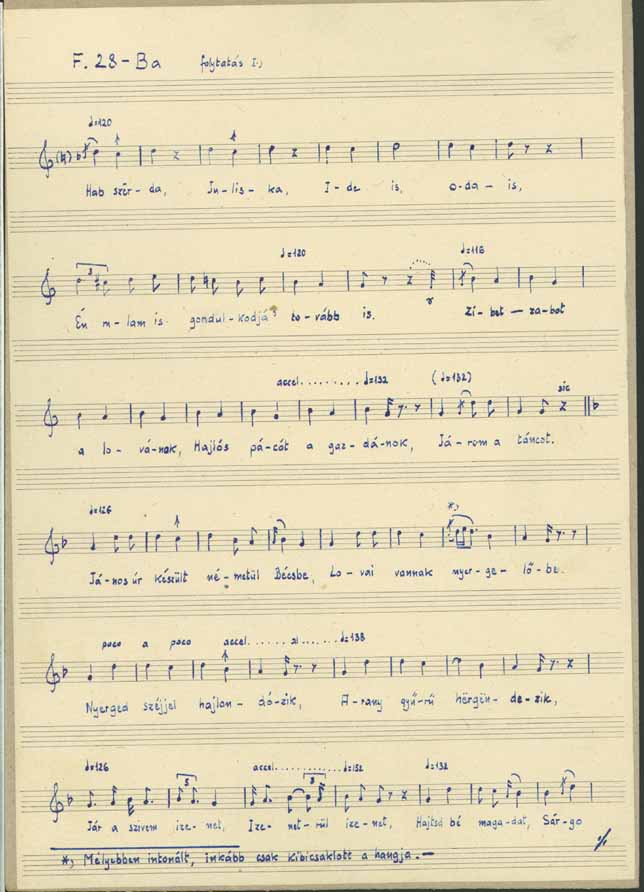 F. 28 - Ba folytatás I.)
♩=120
Hab szër-da, Ju-lis-ka, I-de is, o-da-is,
♩=120 ♩=116
Én m-lam is gondul-kodjá to-vább is. Zi-bet-za-bot
accel......... ♩=132 (♩=132) sic
a lo-vá-nak, Hajlós pá-cót a gaz-dá-nok, Já-rom a táncot.
♩=126 *)
Já-nos úr készült né-metül Bécsbe, Lo-vai vannak nyer-ge-lő-be.
poco a poco accel....... al ...... ♩=138
Nyerged széjjel hajlon-dó-zik, A-rany gyű-rű hërgën-de-zik,
♩=126 accel............. ♩=152 ♩=132
Jár a szivem ize-net, Ize-net-rül ize-net, Hajtsd bé magadat, Sár-go
*) Mélyebben intonált, inkább csak kibicsaklott a hangja. —